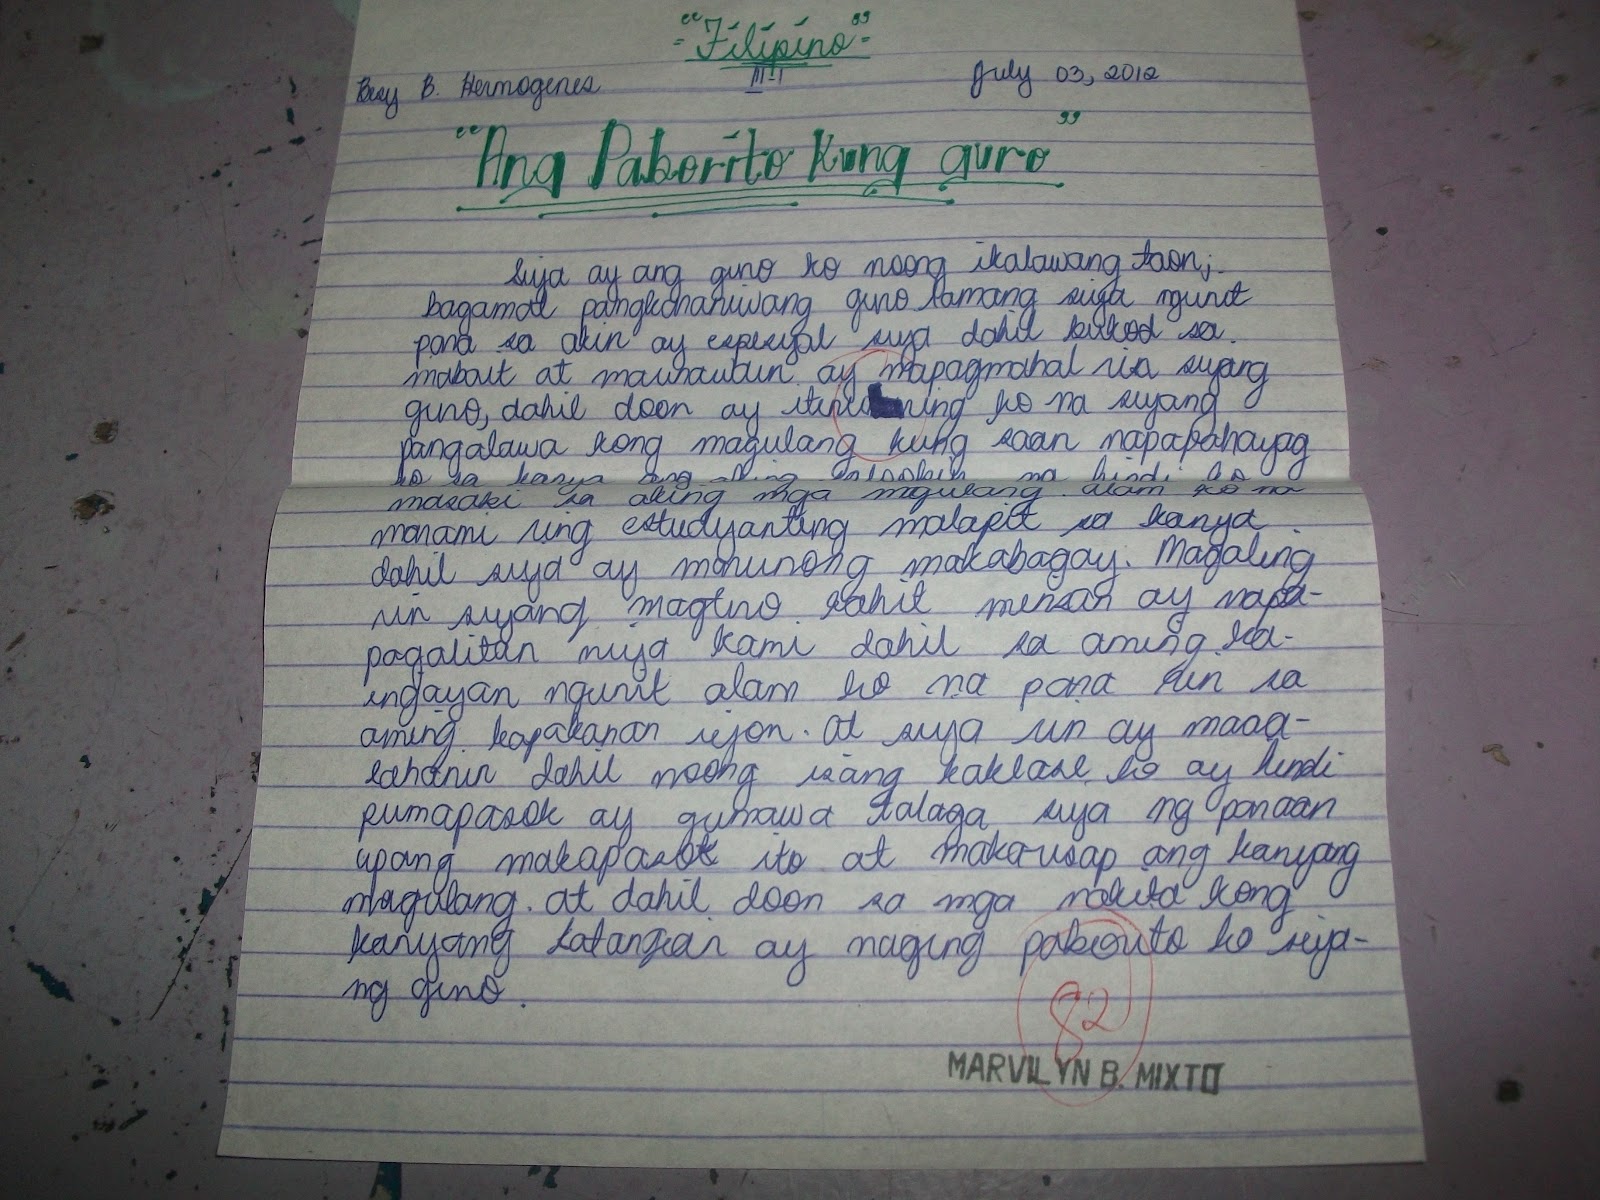 "Filipino"
Besy B. Hermogenes III-I July 03, 2012
"Ang Paborito Kung guro"
Siya ay ang guro ko noong ikalawang taon;
bagamat pangkaraniwang guro lamang siya ngunit
para sa akin ay espesyal siya dahil bukod sa
mabait at maunawain ay mapagmahal rin siyang
guro, dahil doon ay itinuning ko na siyang
pangalawa kong magulang kung saan napapahayag
ko sa kanya ang aking na hindi ko
masabi sa aking mga magulang. alam ko na
marami ring estudyanting malapit sa kanya
dahil siya ay marunong makabagay. Magaling
rin siyang magturo kahit minsan ay napa-
pagalitan niya kami dahil sa aming ka-
ingayan ngunit alam ko na para rin sa
aming kapakanan iyon. at siya rin ay maaa-
sahanin dahil noong isang kaklase ko ay hindi
pumapasok ay gumawa talaga siya ng paraan
upang makapasok ito at maka-usap ang kanyang
magulang. at dahil doon sa mga nakita kong
kanyang katangian ay naging paborito ko siya-
ng guro.
82
MARVILYN B. MIXTO